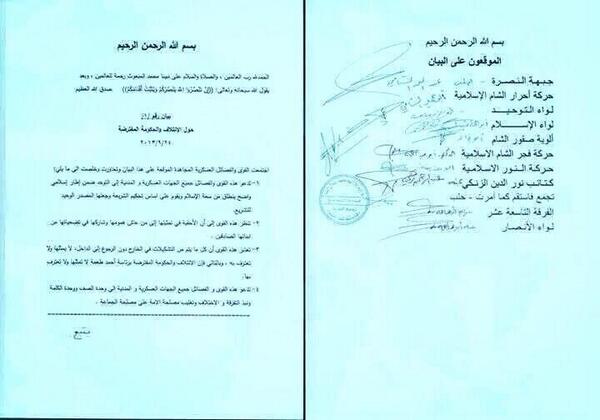 بسم الله الرحمن الرحيم
الحمد لله رب العالمين ، والصلاة والسلام على نبينا محمد المبعوث رحمة للعالمين ، وبعد
يقول الله سبحانه وتعالى: ((إِنْ تَنْصُرُوا اللَّهَ يَنْصُرْكُمْ وَيُثَبِّتْ أَقْدَامَكُمْ)) صدق الله العظيم
بيان رقم /1/
حول الائتلاف والحكومة المفترضة
٢٠١٣/٩/٢٤
اجتمعت القوى والفصائل العسكرية المجاهدة الموقعة على هذا البيان وتحاورت وخلصت الى ما يلي:
١- تدعو هذه القوى والفصائل جميع الجهات العسكرية و المدنية إلى التوحد ضمن إطار إسلامي
واضح ينطلق من سعة الإسلام ويقوم على اساس تحكيم الشريعة وجعلها المصدر الوحيد
للتشريع.
٢- ترى هذه القوى إلى أن الأحقية في تمثيلها إلى من عاش همومها وشاركها في تضحياتها من
ابنائها الصادقين .
٣- تعتبر هذه القوى أن كل ما يتم من التشكيلات في الخارج دون الرجوع إلى الداخل، لا يمثلها ولا
تعترف به ، وبالتالي فإن الائتلاف والحكومة المفترضة برئاسة أحمد طعمة لا تمثلها ولا تعترف
بها.
٤- تدعو هذه القوى و الفصائل جميع الجهات العسكرية و المدنية الى وحدة الصف ووحدة الكلمة
ونبذ التفرقة و الاختلاف وتغليب مصلحة الامة على مصلحة الجماعة .
يتبع
بسم الله الرحمن الرحيم
الموقعون على البيان
جبهة النصرة -
حركة أحرار الشام الإسلامية
لواء التوحيد
لواء الإسلام
ألوية صقور الشام
حركة فجر الشام الاسلامية
حركة النور الاسلامية
كتائب نور الدين الزنكي
تجمع فاستقم كما أمرت - حلب
الفرقة التاسعة عشر
لواء الأنصار